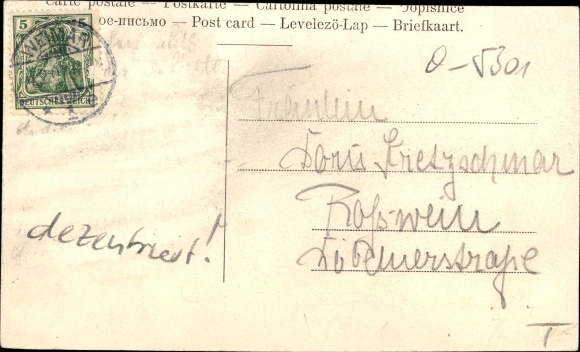 Carte postale — Postkarte — Cartolina postale — Dopisnice
ое-письмо — Post card — Levelezö-Lap — Briefkaart.
5 5
WEIMAR
DEUTSCHES REICH
0-5301
Fräulein
Doris Kretzschmar
Roßwein
Döbelnerstraße
dezentriert!
T